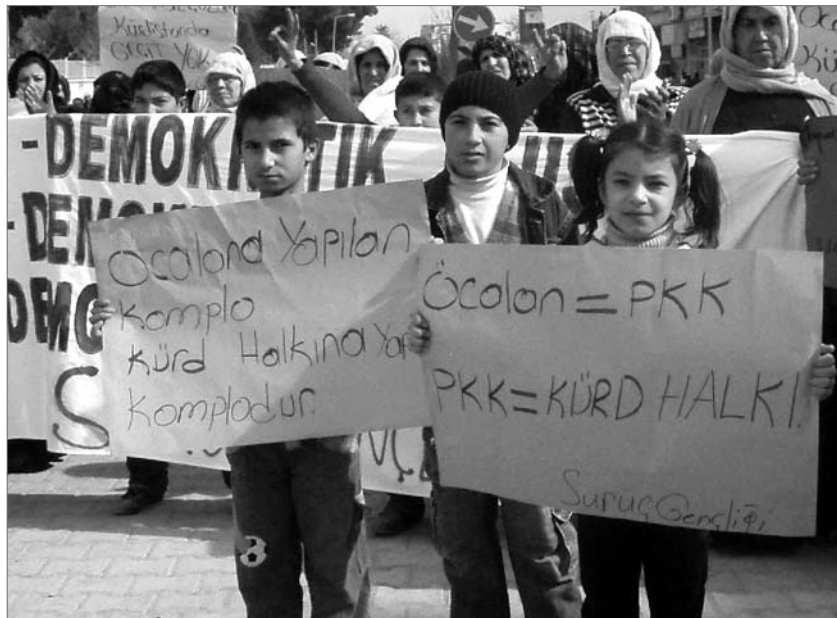 Kürdistanda
GEÇİT YOK
-DEMOKRATIK
-DEMO
DEMO
S
Öcalana Yapılan
Komplo
Kürd Halkına Yap
Komplodur.
Öcalan = PKK
PKK = KÜRD HALKI.
Suruç Gençliği